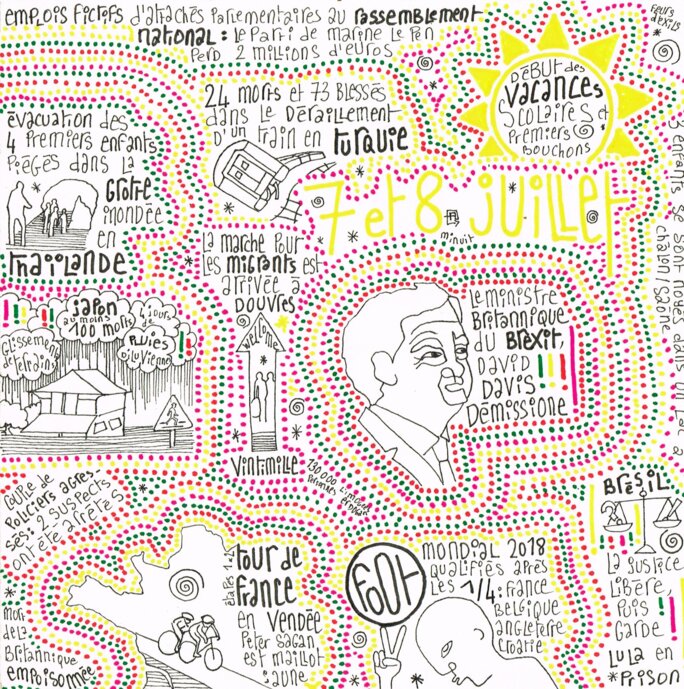 emplois fictifs d'attachés parlementaires au rassemblement
national : le parti de marine le pen
perd 2 millions d'euros
début des
vacances
scolaires et
premiers
bouchons
24 morts et 73 blessés
dans le déraillement
d'un train en turquie
évacuation des
4 premiers enfants
piégés dans la
grotte
inondée
en
thaïlande
7 et 8 juillet
minuit
3 enfants se sont noyés dans un lac à
chalon/saone
la marche pour
les migrants est
arrivée à
douvres
welcome
vintimille
japon
au moins
100 morts
glissements
de terrains
4 jours
de
pluies
diluviennes
le ministre
britannique
du brexit
david
davis
démissionne
policiers agres-
sés : 2 suspects
ont été arrêtés
mort
de la
britannique
empoisonnée
étapes 1 et 2
tour de
france
en vendée
peter sagan
est maillot
jaune
foot
mondial 2018
qualifiés après
les 1/4 : france
belgique
angleterre
croatie
brésil
la justice
libère,
puis
garde
lula en
prison